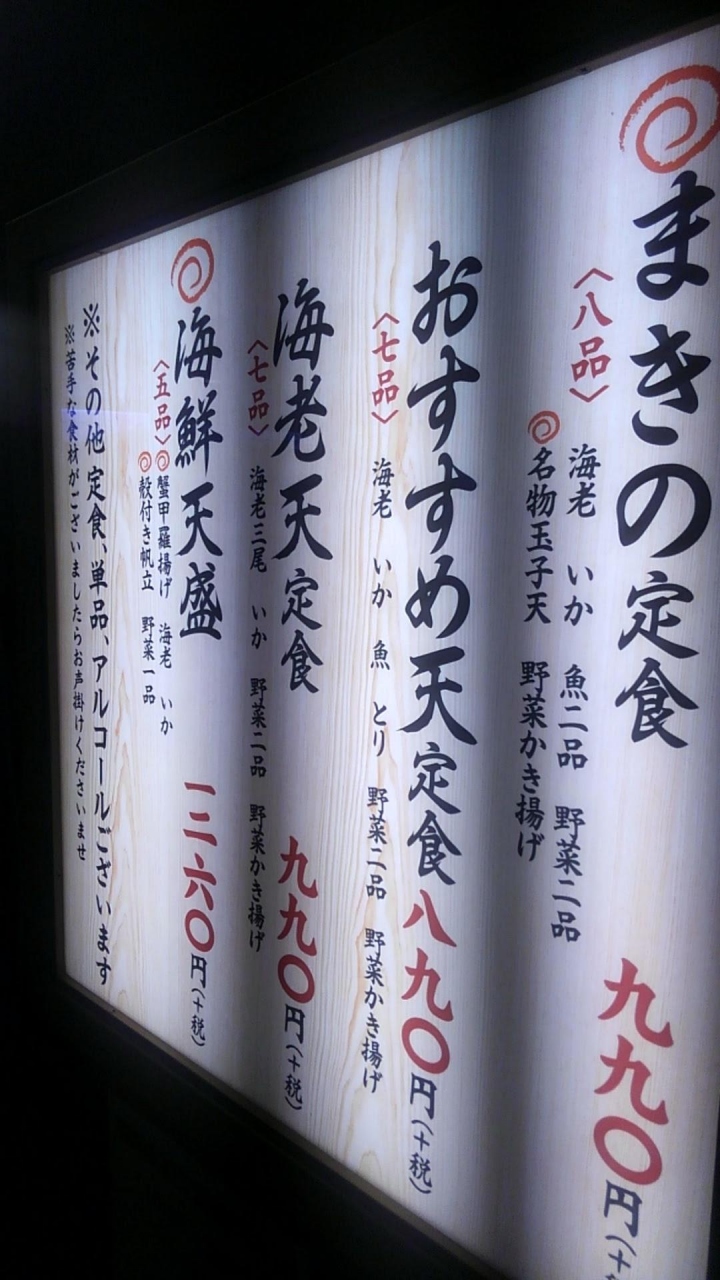 まきの定食 九九〇円(+
〈八品〉 海老 いか 魚二品 野菜二品
名物玉子天 野菜かき揚げ
おすすめ天定食 八九〇円(+税)
〈七品〉 海老 いか 魚 とり 野菜二品 野菜かき揚げ
海老天定食 九九〇円(+税)
〈七品〉 海老三尾 いか 野菜二品 野菜かき揚げ
海鮮天盛 一二六〇円(+税)
〈五品〉 蟹甲羅揚げ 海老 いか
殻付き帆立 野菜一品
※その他 定食、単品、アルコールございます
※苦手な食材がございましたらお声掛けくださいませ